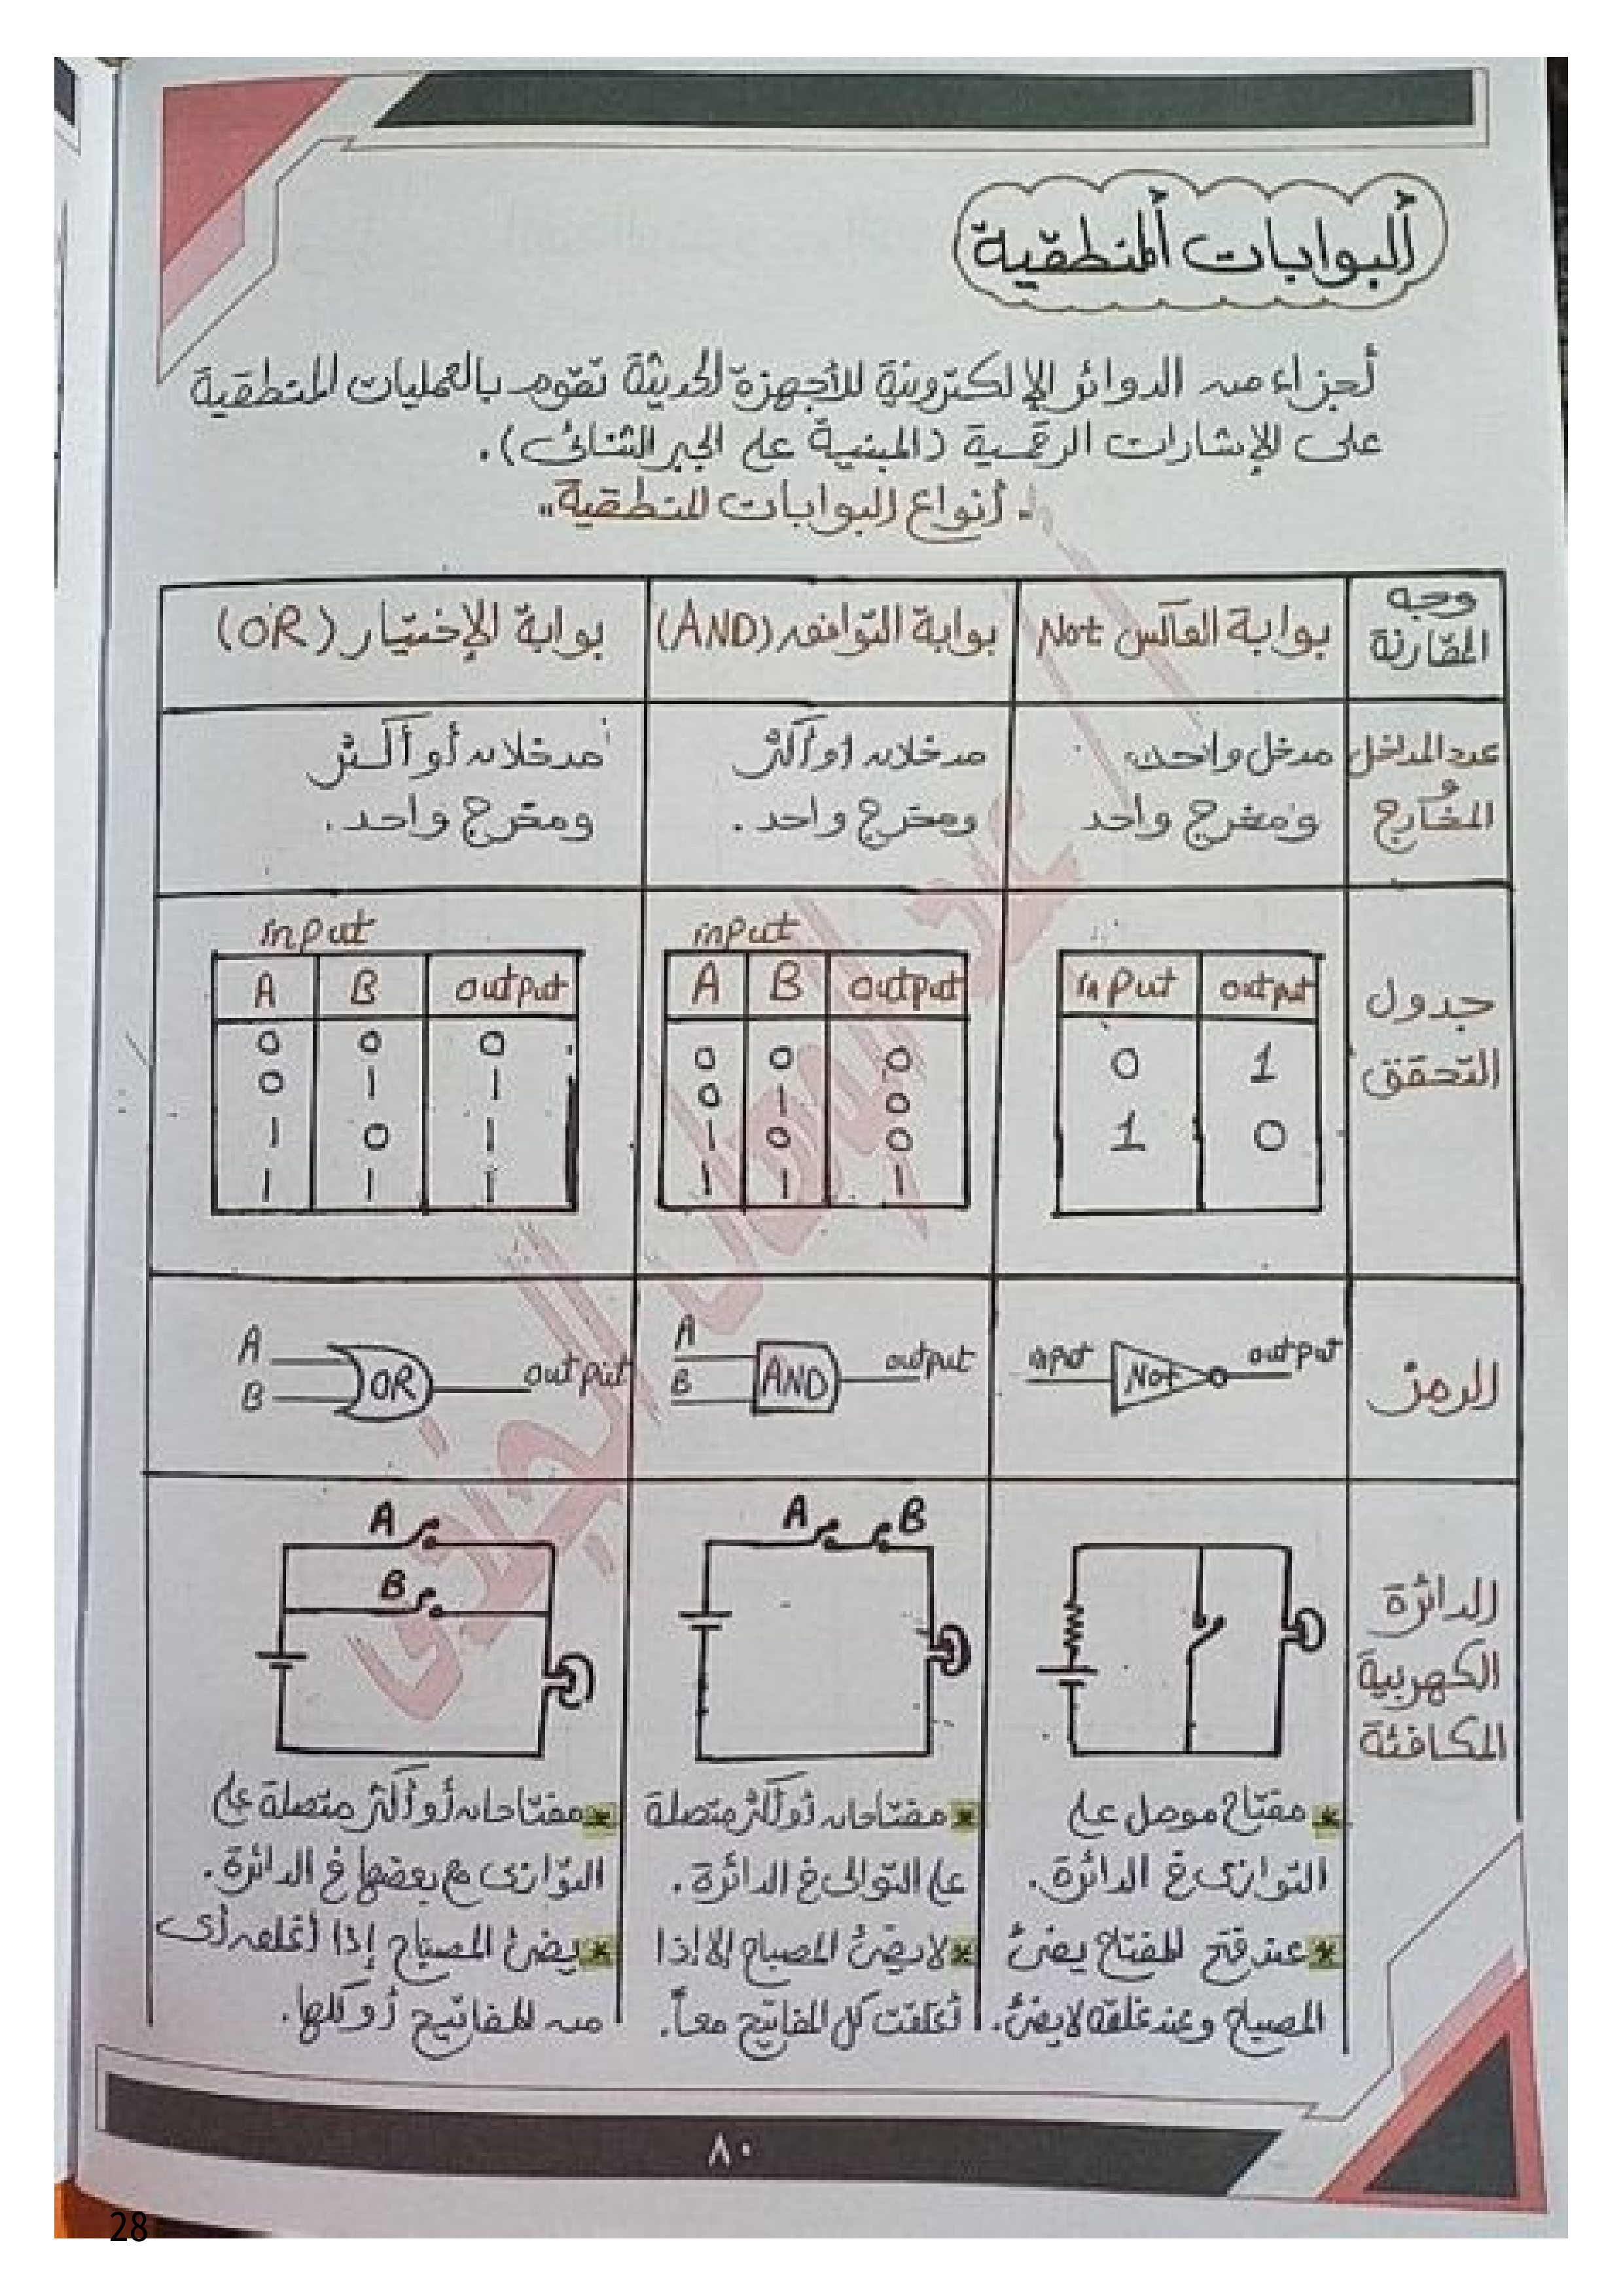 البوابات المنطقية
أجزاء من الدوائر الإلكترونية للأجهزة الحديثة تقوم بالعمليات المنطقية
على الإشارات الرقمية (المبنية على الجبر الثنائى).
أنواع البوابات المنطقية"
وجه
المقارنة
بوابة العاكس Not
بوابة التوافق (AND)
بوابة الإختيار (OR)
عدد المداخل
و
المخارج
مدخل واحد
ومخرج واحد
مدخلان أو أكثر
ومخرج واحد.
مدخلان أو أكثر
ومخرج واحد.
جدول
التحقق
input output
0 1
1 0
input
A B output
0 0 0
0 1 0
1 0 0
1 1 1
input
A B output
0 0 0
0 1 1
1 0 1
1 1 1
الرمز
input Not output
A
B AND output
A
B OR output
الدائرة
الكهربية
المكافئة
A B
A
B
* مفتاح موصل على
التوازى فى الدائرة.
* عند فتح المفتاح يضئ
المصباح وعند غلقه لا يضئ.
* مفتاحان أو أكثر متصلة
على التوالى فى الدائرة.
* لا يضئ المصباح إلا إذا
أغلقت كل المفاتيح معاً.
* مفتاحان أو أكثر متصلة على
التوازى مع بعضها فى الدائرة.
* يضئ المصباح إذا أغلق أى
من المفاتيح أو كلها.
٨٠
28